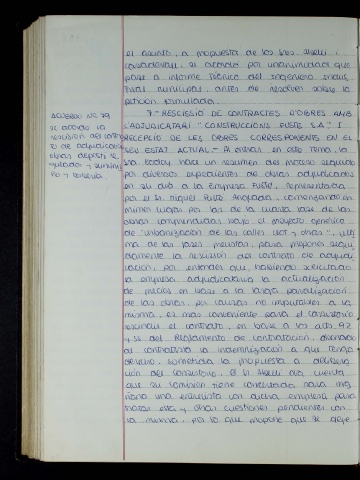 el asunto, a propuesta de los Sres. Abelli i
Casadevall, se acordó por unanimidad que
pase a informe técnico del Ingeniero Indus
trial municipal, antes de resolver sobre la
petición formulada.
ACUERDO Nº 79
se acordó la
rescisión del contra
to de adjudicación
obras
7.- RESCISSIÓ DE CONTRACTES D'OBRES AMB
L'ADJUDICATARI "CONSTRUCCIONS FUSTÉ S.A." I
RECEPCIÓ DE LES OBRES CORRESPONENTS EN EL
SEU ESTAT ACTUAL.- Al entrar en este tema, la
Sra. hace un resumen del proceso seguido
por diversos expedientes de obras adjudicadas
en su día a la empresa Fusté, representada
por el Sr. Miquel Fusté, comenzando en
primer lugar por las de la cuarta fase de las
obras comprendidas bajo el proyecto genérico
de "urbanización de las calles y otras", últi
ma de las fases previstas, para proponer segui
damente la rescisión del contrato de adjudi
cación, por entender que, habiendo solicitado
la empresa adjudicataria la actualización
de precios en base a la larga paralización
de las obras, por causas no imputables a la
misma, es más conveniente para el Consistorio
rescindir el contrato, en base a los arts. 92
y del Reglamento de Contratación, abonando
al contratista la indemnización a que tenga
derecho, sometiendo la propuesta a
ción del Consistorio. El Sr. Abelli da cuenta
que su Comisión tiene concertada para ma
ñana una entrevista con dicha empresa para
tratar esta y otras cuestiones pendientes con
la misma, por lo que propone que se deje